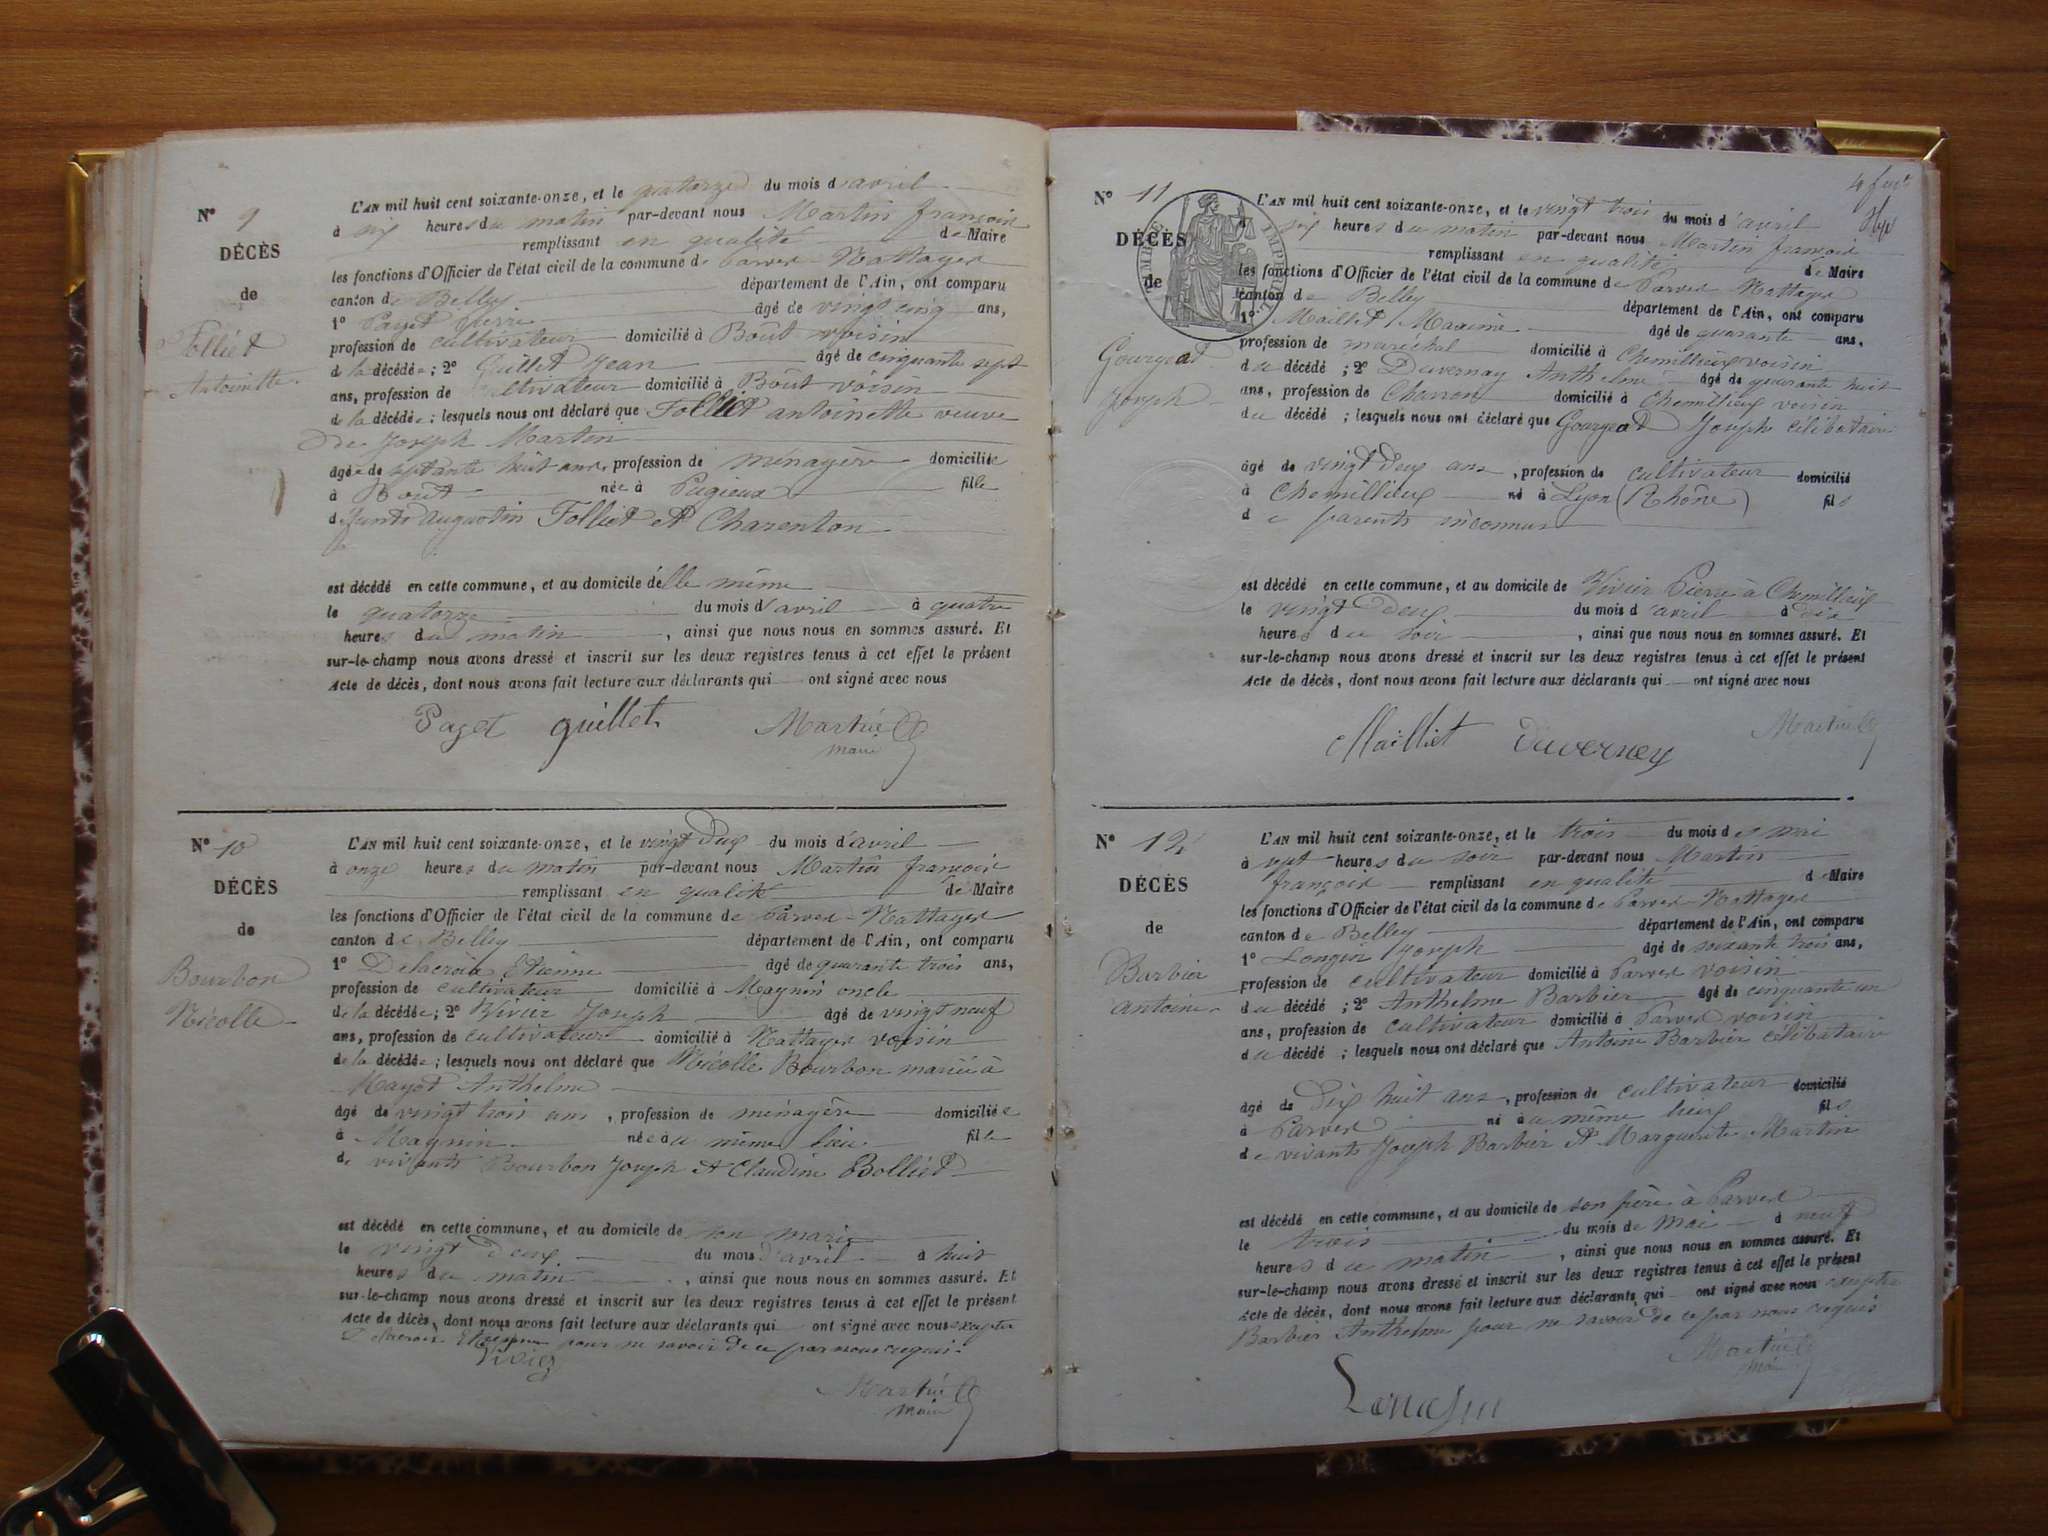 N° 9
DÉCÈS
de
Folliet
Antoinette
L'AN mil huit cent soixante-onze, et le quatorze du mois d'avril
à six heures du matin par-devant nous Martin françois
remplissant en qualité de Maire
les fonctions d'Officier de l'état civil de la commune de Parves-Nattages
canton de Belley département de l'Ain, ont comparu
1° Paget Pierre âgé de vingt cinq ans,
profession de cultivateur domicilié à Boût voisin
de la décédée ; 2° Guillet Jean âgé de cinquante sept
ans, profession de cultivateur domicilié à Boût voisin
de la décédée ; lesquels nous ont déclaré que Folliet antoinette veuve
de Joseph Martin
âgée de septante huit ans, profession de ménagère domiciliée
à Boût née à Pugieux fille
de Augustin Folliet et Charenton
est décédé en cette commune, et au domicile d'elle même
le quatorze du mois d'avril à quatre
heures du matin , ainsi que nous nous en sommes assuré. Et
sur-le-champ nous avons dressé et inscrit sur les deux registres tenus à cet effet le présent
Acte de décès, dont nous avons fait lecture aux déclarants qui ont signé avec nous
Paget guillet Martin
maire
N° 10
DÉCÈS
de
Bourbon
Nicolle
L'AN mil huit cent soixante-onze, et le vingt deux du mois d'avril
à onze heures du matin par-devant nous Martin françois
remplissant en qualité de Maire
les fonctions d'Officier de l'état civil de la commune de Parves-Nattages
canton de Belley département de l'Ain, ont comparu
1° Delacroix Etienne âgé de quarante trois ans,
profession de cultivateur domicilié à Maynin oncle
de la décédée ; 2° Vivier Joseph âgé de vingt neuf
ans, profession de cultivateur domicilié à Nattages voisin
de la décédée ; lesquels nous ont déclaré que Nicolle Bourbon mariée à
Mayot Anthelme
âgé de vingt trois ans , profession de ménagère domiciliée
à Maynin née au même lieu fille
de vivants Bourbon Joseph et Claudine Bolliet
est décédé en cette commune, et au domicile de son mari
le vingt deux du mois d'avril à huit
heures du matin , ainsi que nous nous en sommes assuré. Et
sur-le-champ nous avons dressé et inscrit sur les deux registres tenus à cet effet le présent
Acte de décès, dont nous avons fait lecture aux déclarants qui ont signé avec nous excepté
Delacroix Etienne pour ne savoir de ce par nous requis.
Martin
maire
N° 11
DÉCÈS
de
Gourgeat
Joseph
TIMBRE IMPERIAL
L'AN mil huit cent soixante-onze, et le vingt trois du mois d'avril
à six heures du matin par-devant nous Martin françois
remplissant en qualité de Maire
les fonctions d'Officier de l'état civil de la commune de Parves Nattages
canton de Belley département de l'Ain, ont comparu
1° Maillet Maxime âgé de quarante ans,
profession de maréchal domicilié à Chemillieux voisin
du décédé ; 2° Duvernay Anthelme âgé de quarante huit
ans, profession de Charron domicilié à Chemillieux voisin
du décédé ; lesquels nous ont déclaré que Gourgeat Joseph célibataire
âgé de vingt deux ans , profession de cultivateur domicilié
à Chemillieux né à Lyon (Rhône) fils
de parents inconnus
est décédé en cette commune, et au domicile de Vivier Pierre à Chemillieux
le vingt deux du mois d'avril à dix
heures du soir , ainsi que nous nous en sommes assuré. Et
sur-le-champ nous avons dressé et inscrit sur les deux registres tenus à cet effet le présent
Acte de décès, dont nous avons fait lecture aux déclarants qui ont signé avec nous
Maillet Duvernay Martin
N° 12
DÉCÈS
de
Barbier
antoine
L'AN mil huit cent soixante-onze, et le trois du mois de mai
à sept heures du soir par-devant nous Martin
françois remplissant en qualité de Maire
les fonctions d'Officier de l'état civil de la commune de Parves-Nattages
canton de Belley département de l'Ain, ont comparu
1° Longin Joseph âgé de soixante trois ans,
profession de cultivateur domicilié à Parves voisin
du décédé ; 2° Anthelme Barbier âgé de cinquante un
ans, profession de cultivateur domicilié à Parves voisin
du décédé ; lesquels nous ont déclaré que Antoine Barbier célibataire
âgé de dix huit ans , profession de cultivateur domicilié
à Parves né au même lieu fils
de vivants Joseph Barbier et Marguerite Martin
est décédé en cette commune, et au domicile de son père à Parves
le trois du mois de Mai à neuf
heures du matin , ainsi que nous nous en sommes assuré. Et
sur-le-champ nous avons dressé et inscrit sur les deux registres tenus à cet effet le présent
Acte de décès, dont nous avons fait lecture aux déclarants qui ont signé avec nous excepté
Barbier Anthelme pour ne savoir de ce par nous requis
Martin
Longin